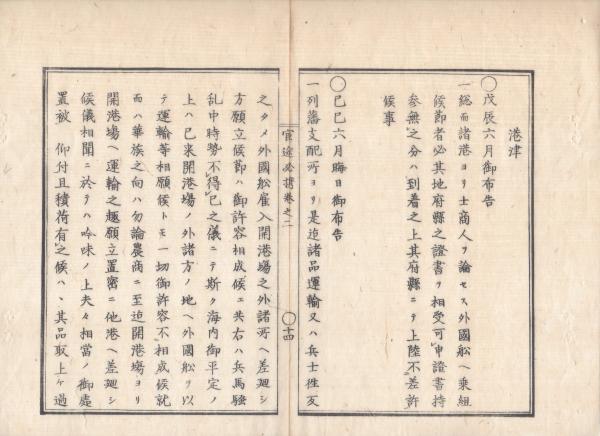 港津
〇戊辰六月御布告
一総而諸港ヨリ士商人ヲ論セス外國舩ヘ乗組
候節者必其地府縣之證書ヲ相受可申證書持
参無之分ハ到着之上其府縣ニテ上陸不差許
候事
〇己巳六月晦日御布告
一列藩支配所ヨリ是迠諸品運輸又ハ兵士徃反
官途必携巻之二
〇十四
之タメ外國舩雇入開港場之外諸所ヘ差廻シ
方願立候節ハ御許容相成候ヱ共右ハ兵馬騒
乱中時勢不得已之儀ニテ斯ク海内御平定ノ
上ハ已来開港場ノ外諸方ノ地ヘ外國舩ヲ以
テ運輸等相願候トモ一切御許容不相成候就
而ハ華族之向ハ勿論農商ニ至迠開港場ヨリ
開港場ヘ運輸之趣願立置密ニ他港ヘ差廻シ
候儀相聞ニ於テハ吟味ノ上夫々相當ノ御處
置被 仰付且積荷有之候ハヽ其品取上ケ過